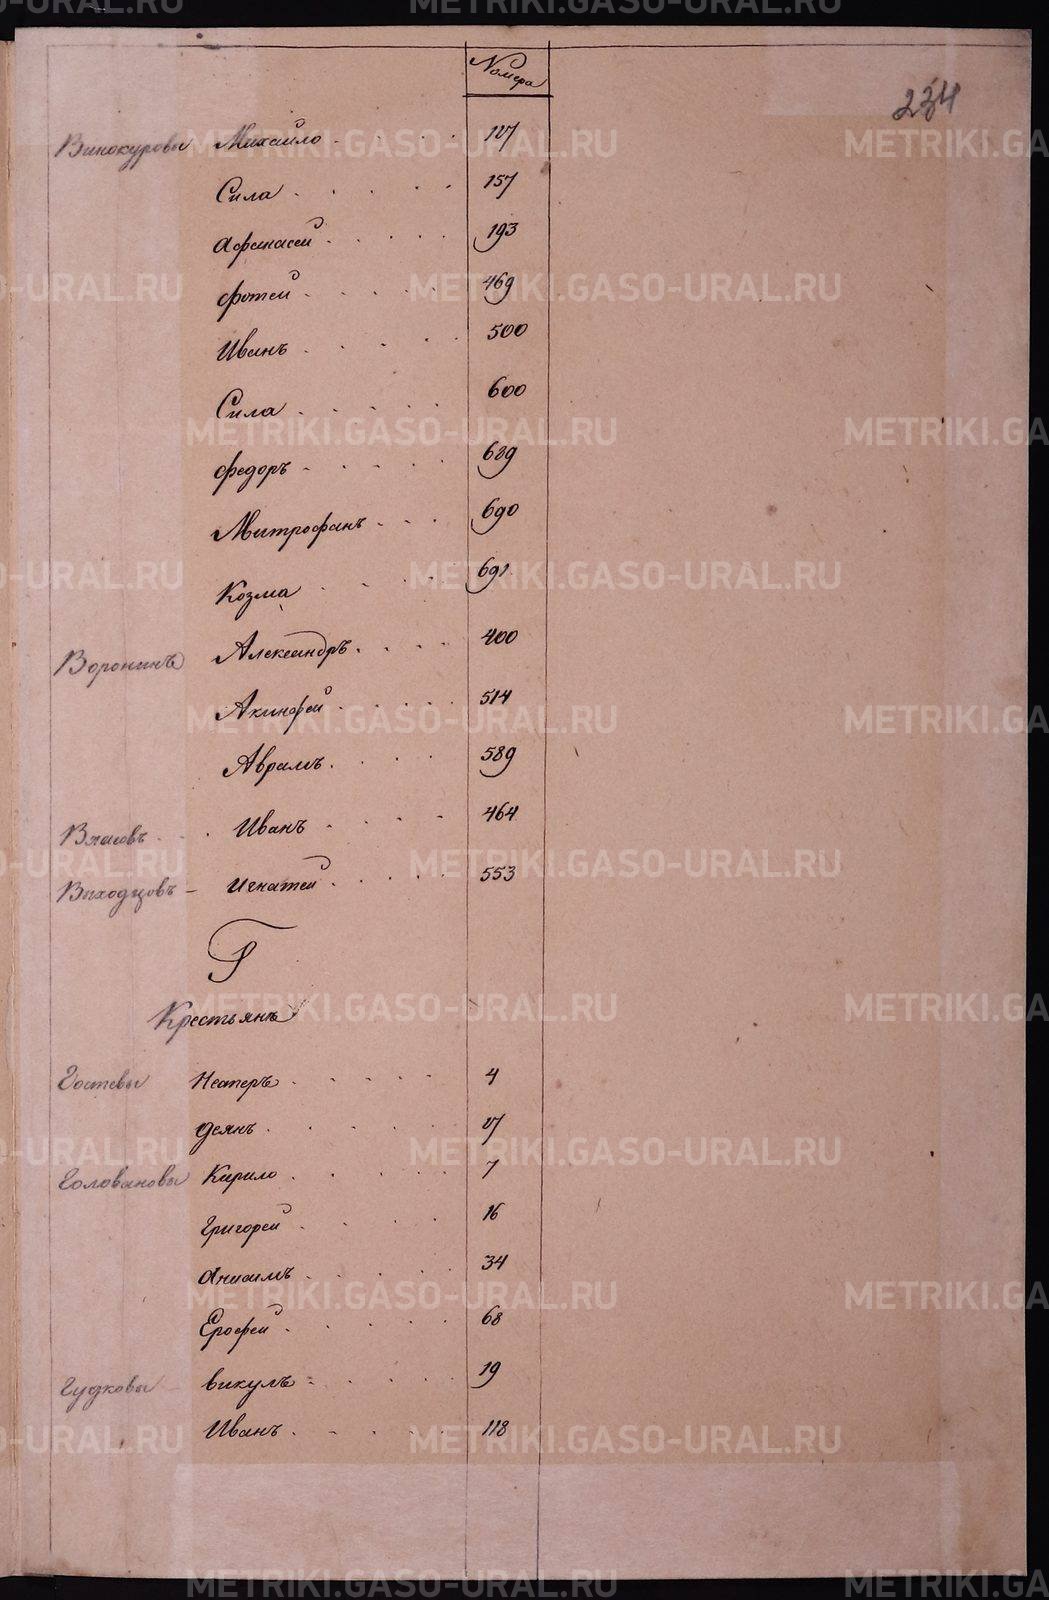 Номера
234
Винокуровы Михайло 127
Сила 157
Афанасей 193
Фотей 469
Иванъ 500
Сила 600
Федоръ 689
Митрофанъ 690
Козма 691
Воронинъ Александръ 400
Акинфей 514
Аврамъ 589
Власовъ Иванъ 464
Выходцовъ Игнатей 553
Г
Крестьянъ
Гостевы Нестеръ 4
Деянъ
Головановы Кирило 7
Григорей 16
Анисимъ 34
Ерофей 68
Гудковы Викулъ 19
Иванъ 118
METRIKI.GASO-URAL.RU